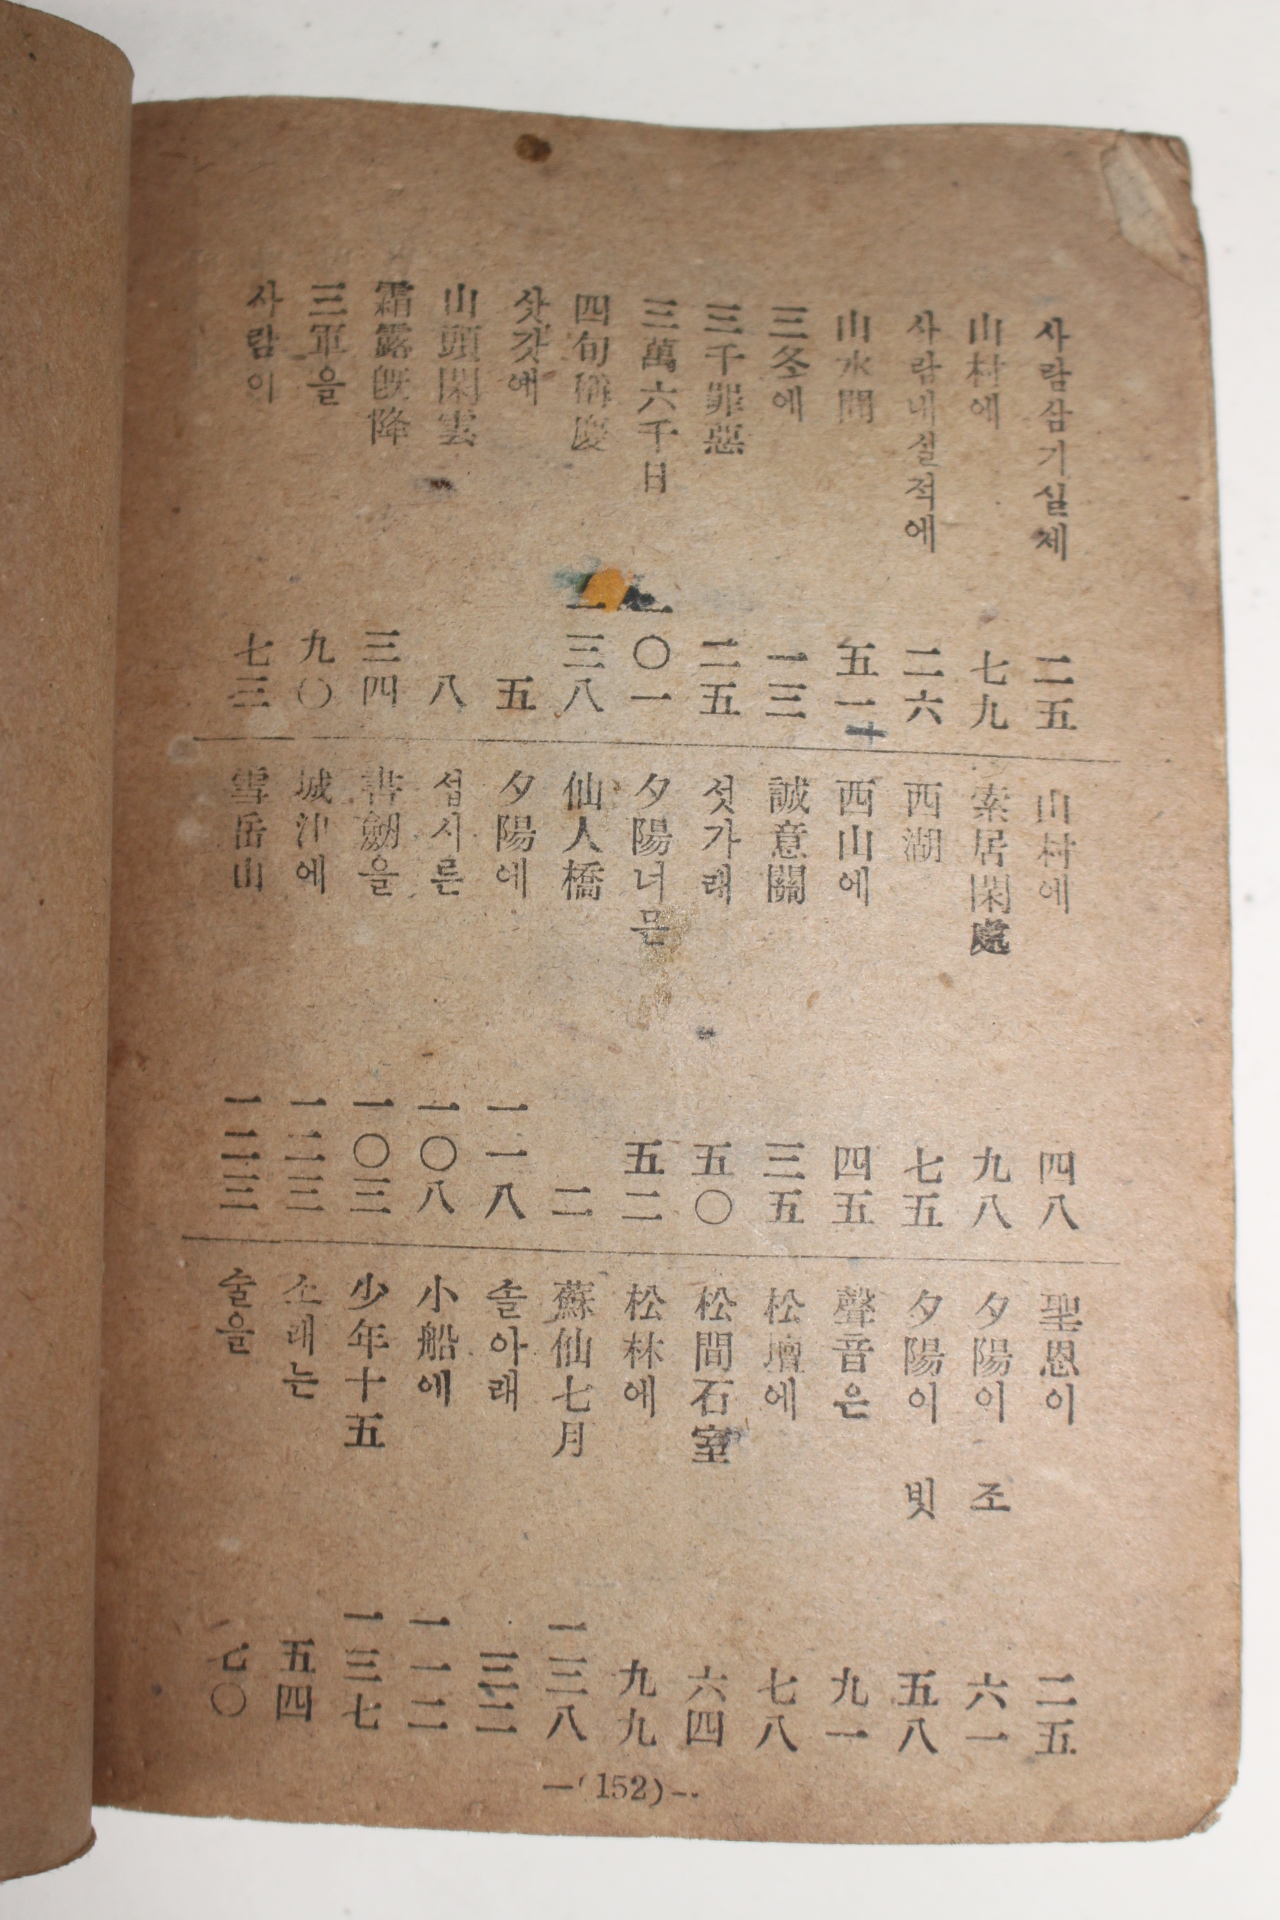 사람삼기실제 二五
山村에 七九
사람내실적에 二六
山水間 五一
三冬에 一三
三千罪惡 二五
三萬六千日 一〇一
四旬稱慶 一三八
삿갓애 五
山頭閑雲 八
霜露旣降 三四
三軍을 九〇
사람이 七三
山村에 四八
索居閑處 九八
西湖 七五
西山에 四五
誠意關 三五
섯가래 五〇
夕陽너믄 五二
仙人橋 二
夕陽에 一一八
섭시른 一〇八
書劒을 一〇三
城津에 一二三
雪岳山 一二三
聖恩이 二五
夕陽이 조 六一
夕陽이 빗 五八
聲音은 九一
松壇에 七八
松間石室 六四
松林에 九九
蘇仙七月 一三八
솔아래 三二
小船에 一一二
少年十五 一三七
소래는 五四
술을 七〇
—(152)—